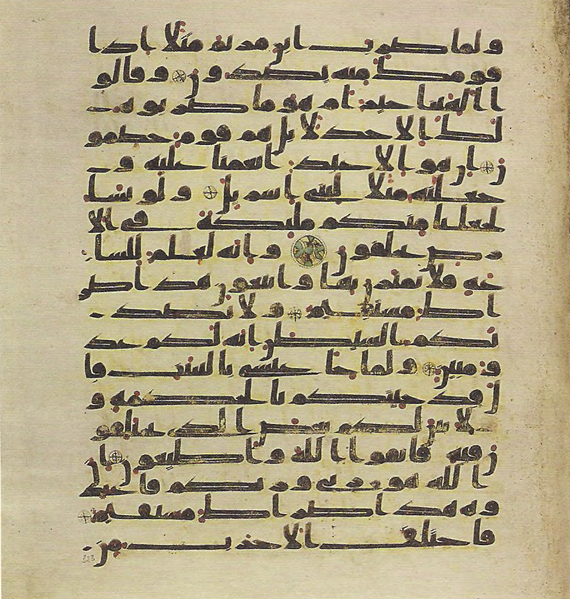 ولما ضرب ابن مريم مثلا اذا
قومك منه يصدون وقالو
ا الهتنا خير ام هو ما ضربوه
لك الا جدلا بل هم قوم خصمو
ن ان هو الا عبد انعمنا عليه و
جعلنه مثلا لبني اسريل ولو نشا
لجعلنا منكم مليكة في الا
رض يخلفون وانه لعلم للسا
عة فلا تمترن بها واتبعون هذا صر
اط مستقيم ولا يصد
نكم الشيطن انه لكم عد
و مبين ولما جا عيسى بالبينت قا
ل قد جيتكم بالحكمة و
لابين لكم بعض الذي تختلفو
ن فيه فاتقوا الله واطيعون ا
ن الله هو ربي وربكم فاعبد
وه هذا صراط مستقيم
فاختلف الاحزب من